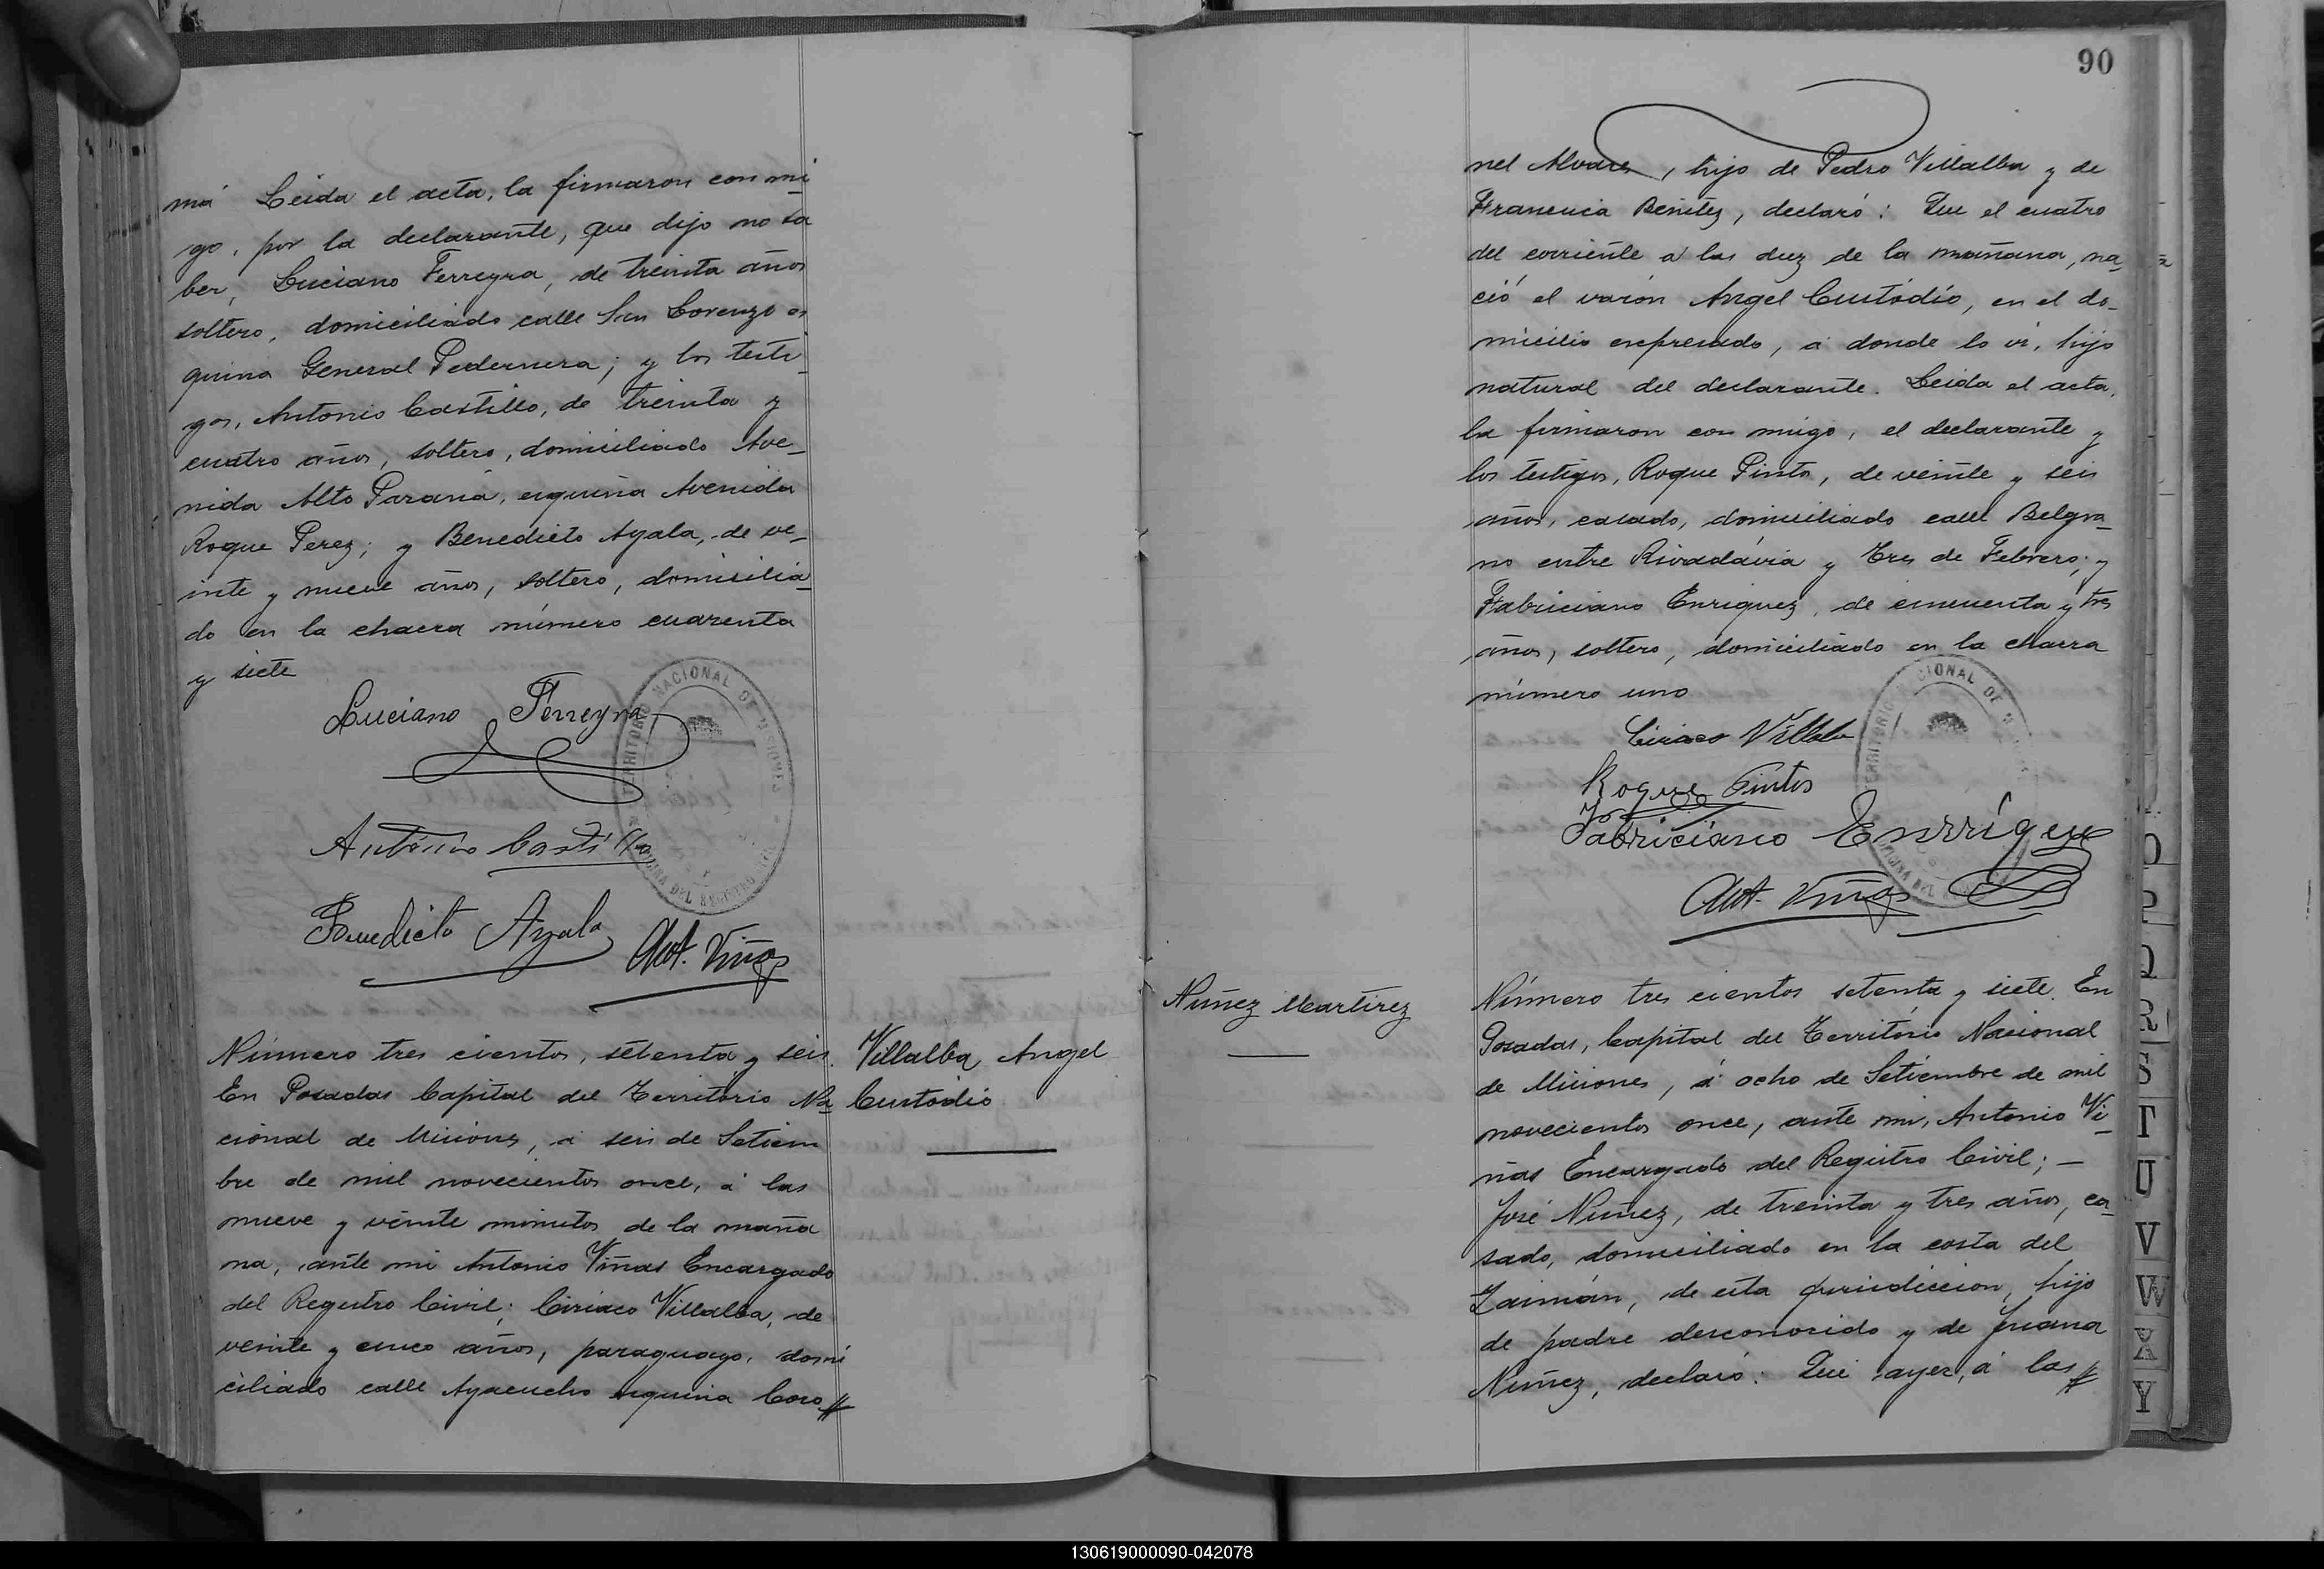 má Leida el acta, la firmaron con mi
go, por la declarante, que dijo no sa
ber, Luciano Ferreyra, de treinta años
soltero, domiciliado calle San Lorenzo es
quina General Pedernera; y los testi
gos, Antonio Castillo, de treinta y
cuatro años, soltero, domiciliado Ave_
nida Alto Paraná, esquina Avenida
Roque Perez; y Benedicto Ayala, de ve_
inte y nueve años, soltero, domicilia
do en la chacra número cuarenta
y siete
Luciano Ferreyra
Antonio Castillo
Benedicto Ayala
Ant. Viñas
TERRITORIO NACIONAL DE MISIONES
OFICINA DEL REGISTRO CIVIL
Número tres cientos, setenta y seis.
En Posadas Capital del Territorio Na
cional de Misiones, á seis de Setiem
bre de mil novecientos once, á las
nueve y veinte minutos de la maña
na, ante mi Antonio Viñas Encargado
del Registro Civil; Ciriaco Villalba, de
veinte y cinco años, paraguayo, domi
ciliado calle Ayacucho esquina Coro
Villalba Angel
Custodio
90
nel Alvarez, hijo de Pedro Villalba y de
Francisca Benitez, declaró: Que el cuatro
del corriente a las diez de la mañana, na_
ció el varón Angel Custodio, en el do_
micilio expresado, á donde lo vi, hijo
natural del declarante. Leida el acta,
la firmaron con migo, el declarante y
los testigos, Roque Pinto, de veinte y seis
años, casado, domiciliado calle Belgra_
no entre Rivadavia y Tres de Febrero; y
Fabriciano Enriquez, de cincuenta y tres
años, soltero, domiciliado en la chacra
número uno
Ciriaco Villalba
Roque Pintos
Fabriciano Enrriquez
Ant. Viñas
TERRITORIO NACIONAL DE
OFICINA DEL
Nuñez Martirez
Número tres cientos setenta y siete. En
Posadas, Capital del Territorio Nacional
de Misiones, á ocho de Setiembre de mil
novecientos once, ante mi, Antonio Vi_
ñas Encargado del Registro Civil; _
José Nuñez, de treinta y tres años, ca_
sado, domiciliado en la costa del
Zaimán, de esta jurisdiccion, hijo
de padre desconocido y de Juana
Nuñez, declaró: Que ayer, á las
O
P
Q
R
S
T
U
V
W
X
Y
130619000090-042078